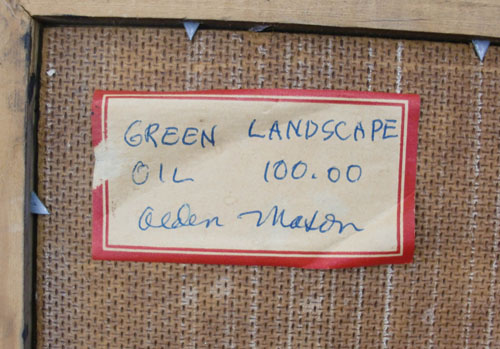 GREEN LANDSCAPE
OIL 100.00
Alden Mason